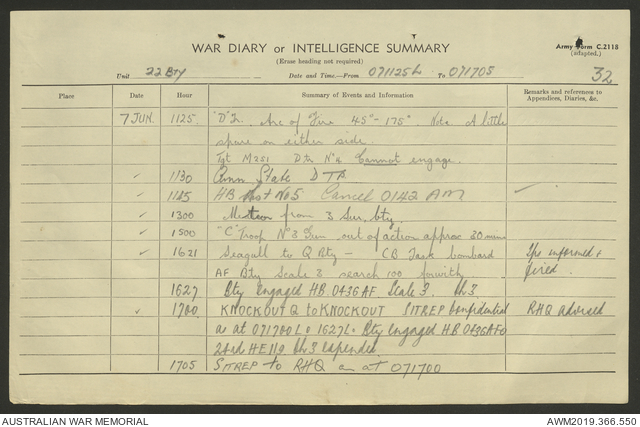 Army Form C.2118
(adapted.)
WAR DIARY or INTELLIGENCE SUMMARY
(Erase heading not required)
32
Unit 22 Bty Date and Time.—From 071125L To 071705
Place Date Hour Summary of Events and Information Remarks and references to Appendices, Diaries, &c.
7 JUN. 1125. "D" Arc of Fire 45° - 175°. Note. A little
spare on either side.
Tgt M251 No 4 Cannot engage.
1130 State DTA
1145 HB No 5 Cancel 0142 AM
1300 from 3 Sur. bty.
1500 "C" Troop No 3 Gun out of action approx 30 mins
1621 Seagull to Q Bty - CB Task bombard Tps informed &
AF Bty Scale 3 search 100 forwith fired.
1627 Bty engaged HB. 0436 AF. Scale 3.
1700 KNOCKOUT Q to KNOCKOUT SITREP RHQ advised
as at 071700L 1627L Bty engaged HB 0436AF
HE 119 expended.
1705 SITREP to RHQ as at 071700
AUSTRALIAN WAR MEMORIAL AWM2019.366.550